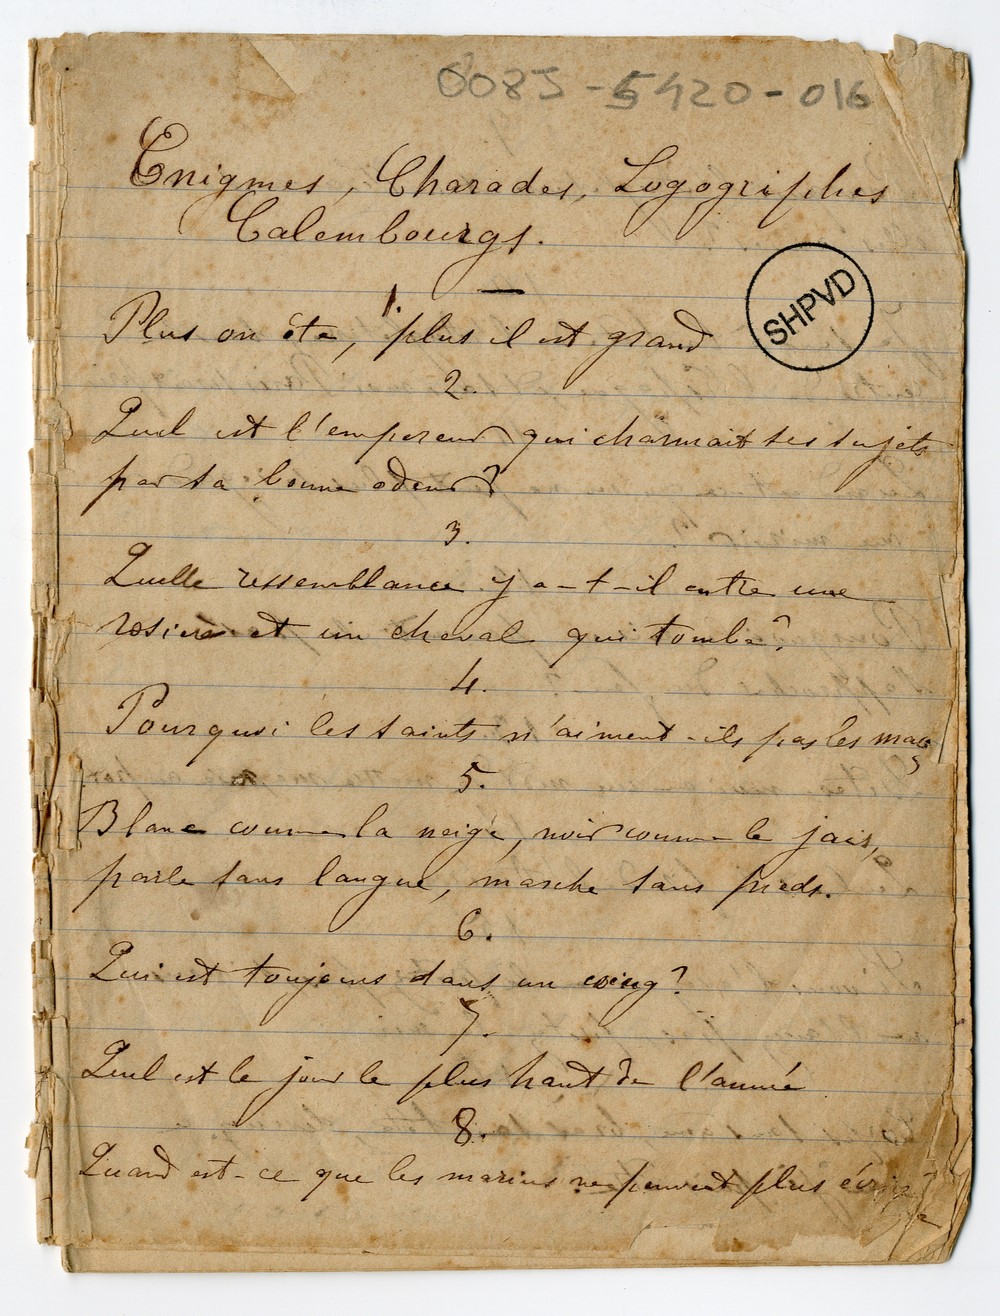 0085-5420-016
Enigmes, Charades, Logogriphes
Calembourgs.
SHPVD
1. —
Plus on ôte, plus il est grand
2.
Quel est l'empereur qui charmait ses sujets
par sa bonne odeur?
3.
Quelle ressemblance y a-t-il entre une
rosière et un cheval qui tombe?
4.
Pourquoi les saints n'aiment-ils pas les mags
5.
Blanc comme la neige, noir comme le jais,
parle sans langue, marche sans pieds.
6.
Qui est toujours dans un coing?
7.
Quel est le jour le plus haut de l'année
8.
Quand est-ce que les marins ne peuvent plus écrire?